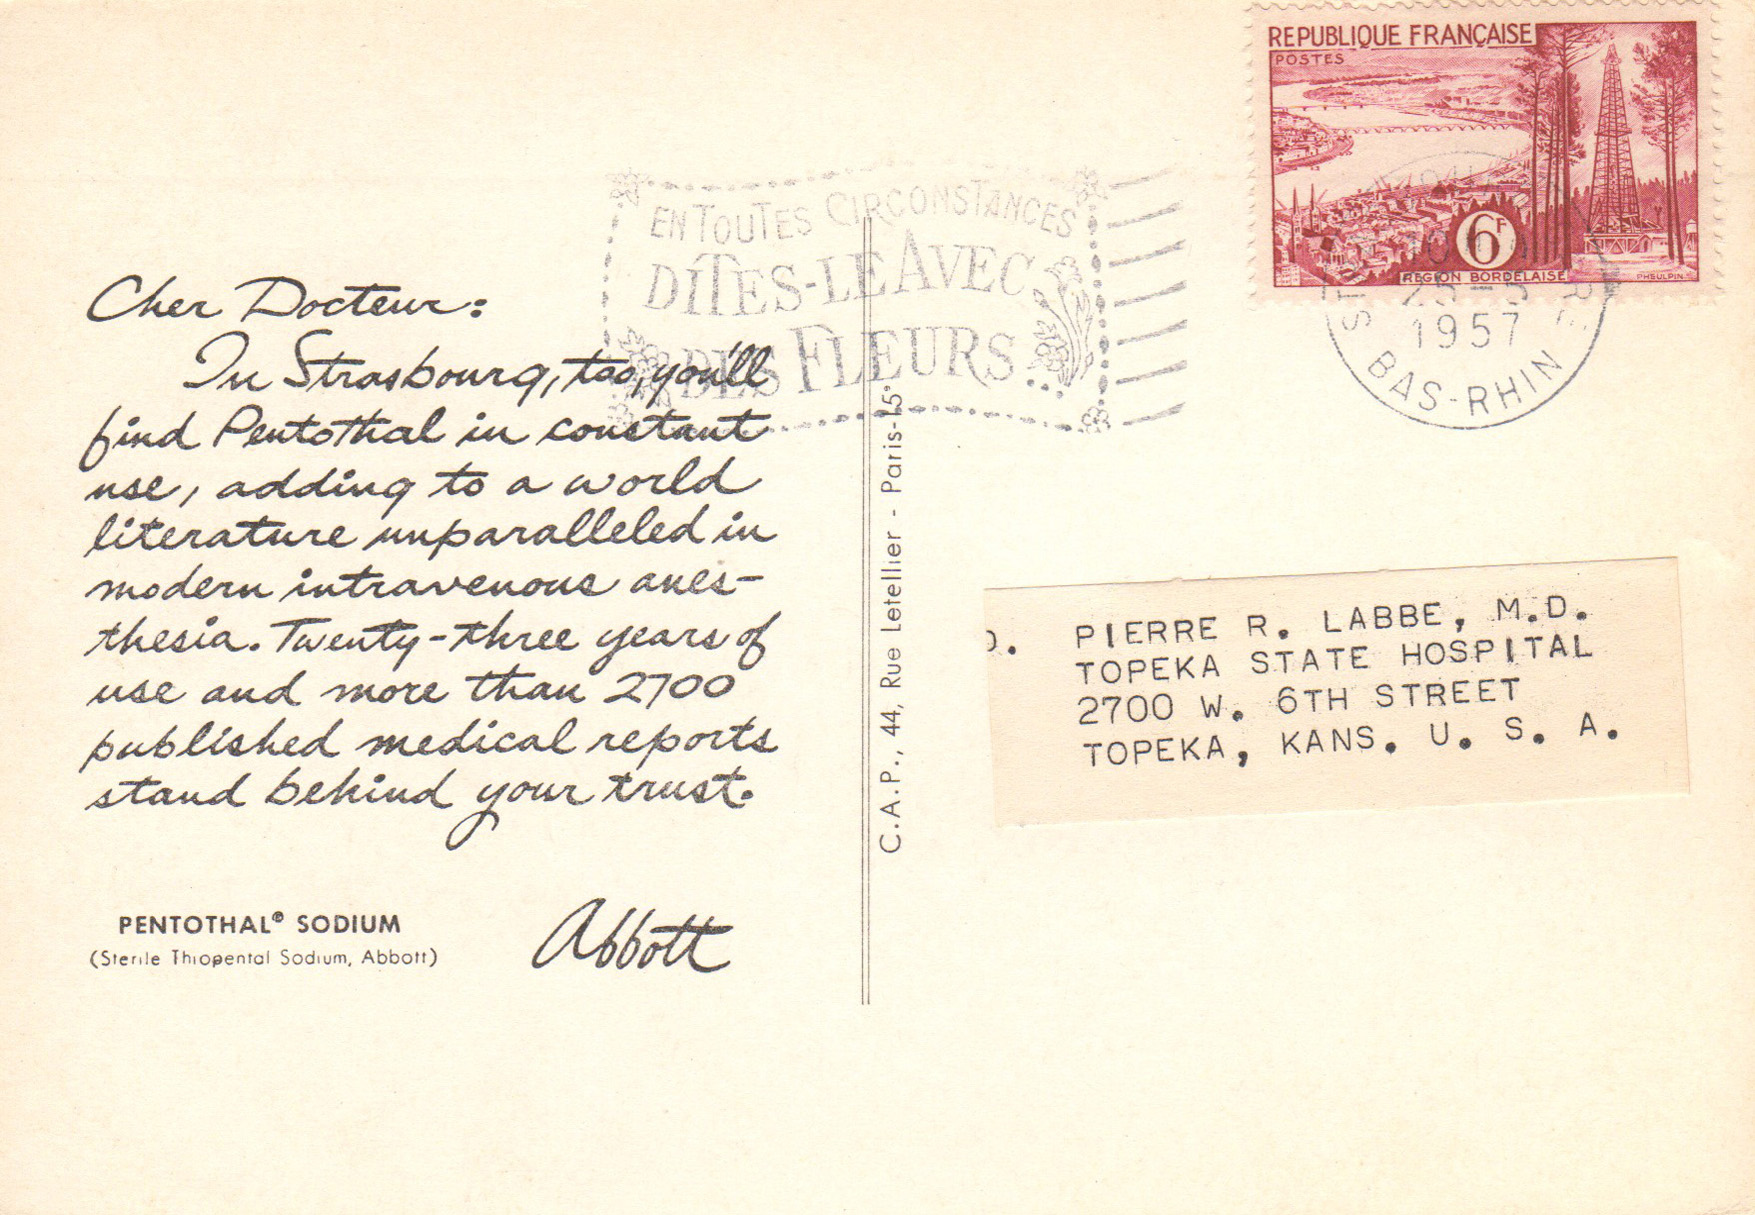 REPUBLIQUE FRANÇAISE
POSTES
6F
REGION BORDELAISE
PHEULPIN
1957
BAS-RHIN
EN TOUTES CIRCONSTANCES
DITES-LE AVEC
DES FLEURS
Cher Docteur:
In Strasbourg, too, you'll
find Pentothal in constant
use, adding to a world
literature unparalleled in
modern intravenous anes-
thesia. Twenty-three years of
use and more than 2700
published medical reports
stand behind your trust.
PENTOTHAL® SODIUM
(Sterile Thiopental Sodium, Abbott)
Abbott
C.A.P., 44, Rue Letellier - Paris-15°
PIERRE R. LABBE, M.D.
TOPEKA STATE HOSPITAL
2700 W. 6TH STREET
TOPEKA, KANS. U. S. A.